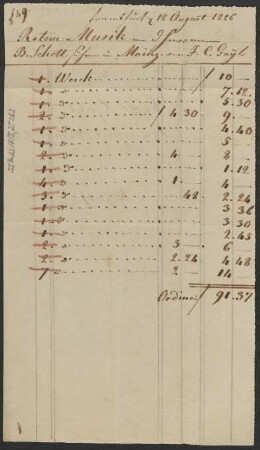 149
12 August 1826
Retour Musik an
B. Schott Söhne in Mainz von F. C. Gayl
1. Werk 10 —
1. " 7. 12
1. " 5. 30
2. " 4 30 9. —
1. " 5. 40
1. " 5 —
2. " 4 — 8 —
1. " 1. 12
4. " 1 — 4 —
3. " 48 2. 24
1. " 3 36
1. " 3. 30
1. " 2. 45
2. " 3 — 6 —
2. " 2. 24 4 48
7 " 2 14
Ordinair 91. 37